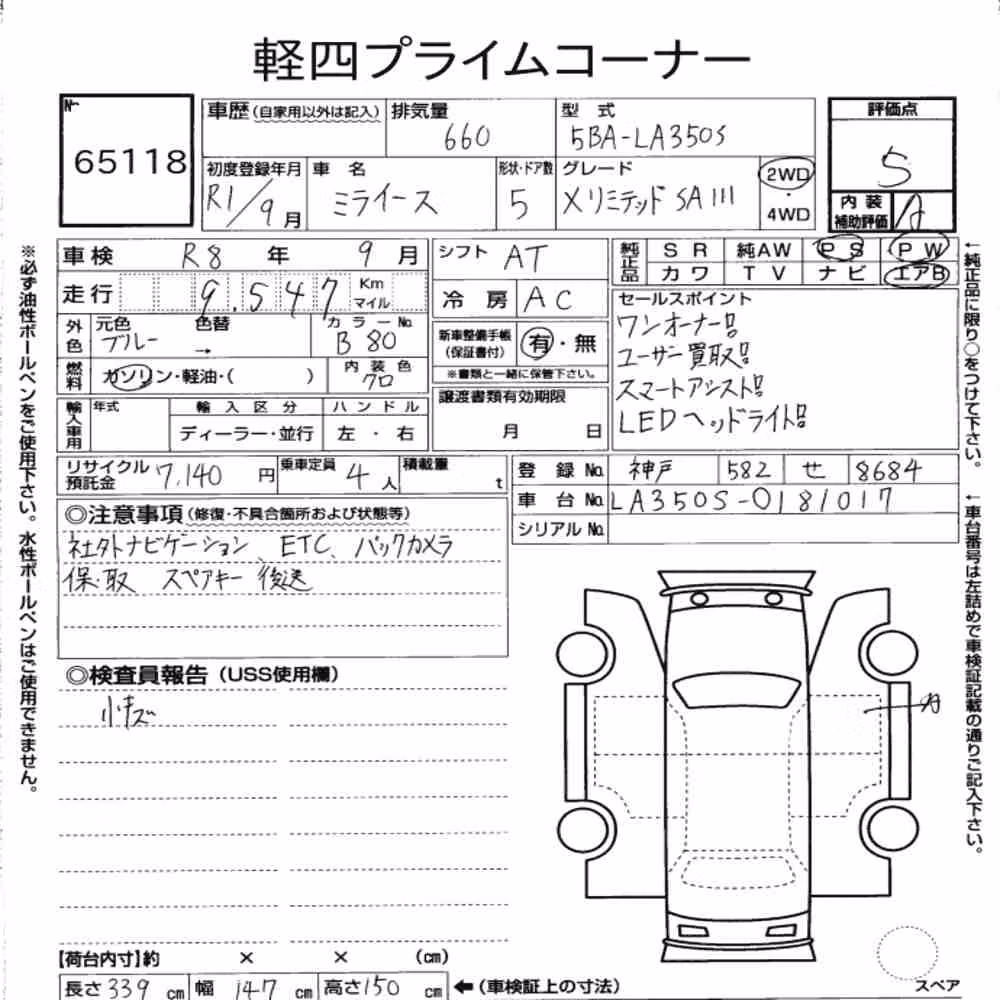 軽四プライムコーナー
№
65118
車歴(自家用以外は記入) 排気量 660 型式 5BA-LA350S
評価点
5
初度登録年月 R1/9月 車名 ミライース 形状・ドア数 5 グレード Xリミテッド SAIII 2WD・4WD
内装補助評価 A
車検 R8年 9月 シフト AT
純正品 SR 純AW PS PW
カワ TV ナビ エアB
走行 9.547 Km マイル 冷房 AC
セールスポイント
ワンオーナー!!
ユーザー買取!!
スマートアシスト!!
LEDヘッドライト!!
外色 元色 ブルー 色替 → カラーNo. B80
新車整備手帳(保証書付) 有・無
※書類と一緒に保管下さい。
燃料 ガソリン・軽油・( ) 内装色 クロ
譲渡書類有効期限
月 日
輸入車用 年式 輸入区分 ハンドル
ディーラー・並行 左・右
リサイクル預託金 7,140円 乗車定員 4人 積載量 t
登録No. 神戸 582 せ 8684
車台No. LA350S-0181017
シリアルNo.
◎注意事項(修復・不具合箇所および状態等)
社外ナビゲーション、ETC、バックカメラ
保・取 スペアキー後送
◎検査員報告(USS使用欄)
小キズ
A
【荷台内寸】約 × × (cm)
長さ339cm 幅147cm 高さ150cm ←(車検証上の寸法)
スペア
※必ず油性ボールペンをご使用下さい。水性ボールペンはご使用できません。
←純正品に限り○をつけて下さい。
←車台番号は左詰めで車検証記載の通りご記入下さい。